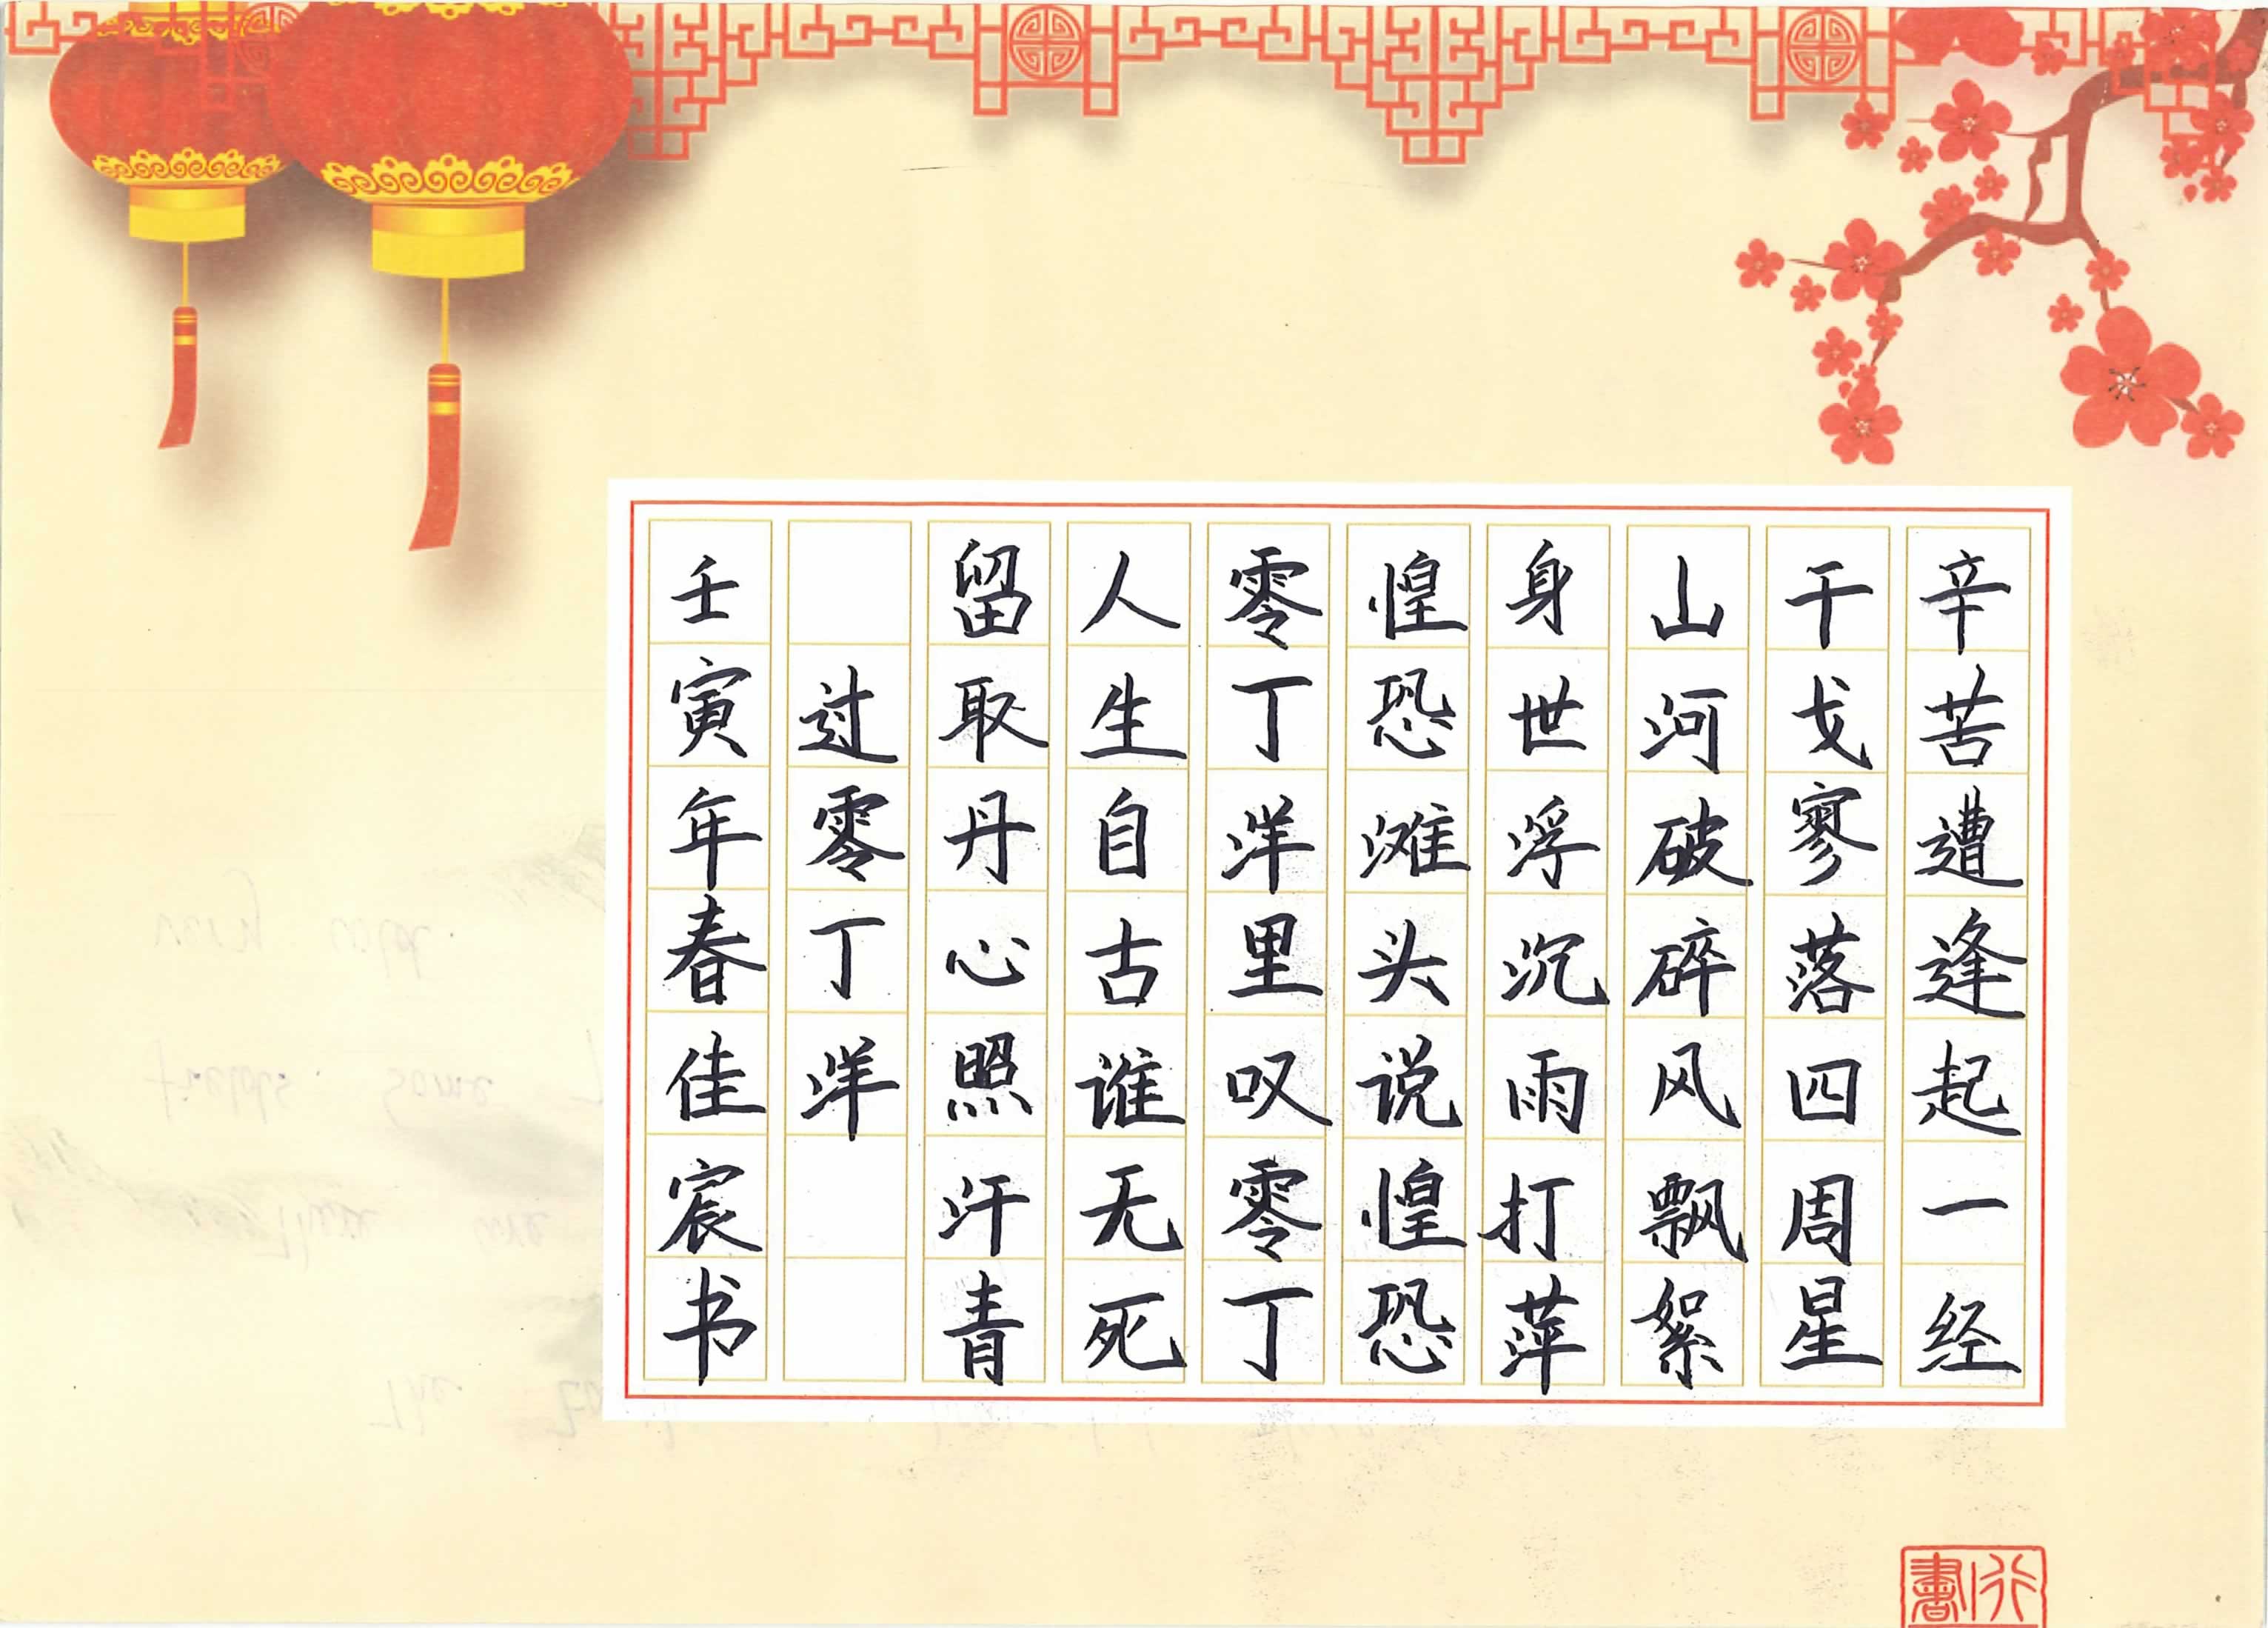 辛苦遭逢起一经
干戈寥落四周星
山河破碎风飘絮
身世浮沉雨打萍
惶恐滩头说惶恐
零丁洋里叹零丁
人生自古谁无死
留取丹心照汗青
过零丁洋
壬寅年春佳宸书
行書